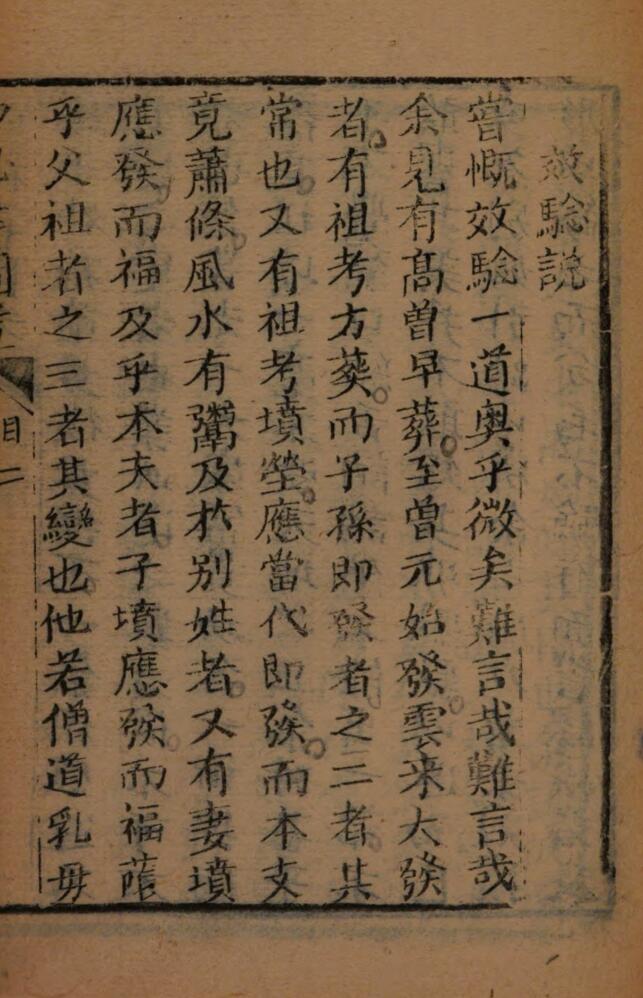 效驗說
嘗慨效驗一道奥乎微矣難言哉難言哉
余見有高曾早葬至曾元始發雲来大發
者有祖考方葬而子孫即發者之二者其
常也又有祖考墳塋應當代即發而本支
竟蕭條風水有鬻及扵别姓者又有妻墳
應發而福及乎本夫者子墳應發而福蔭
乎父祖者之三者其變也他若僧道乳毋
目二